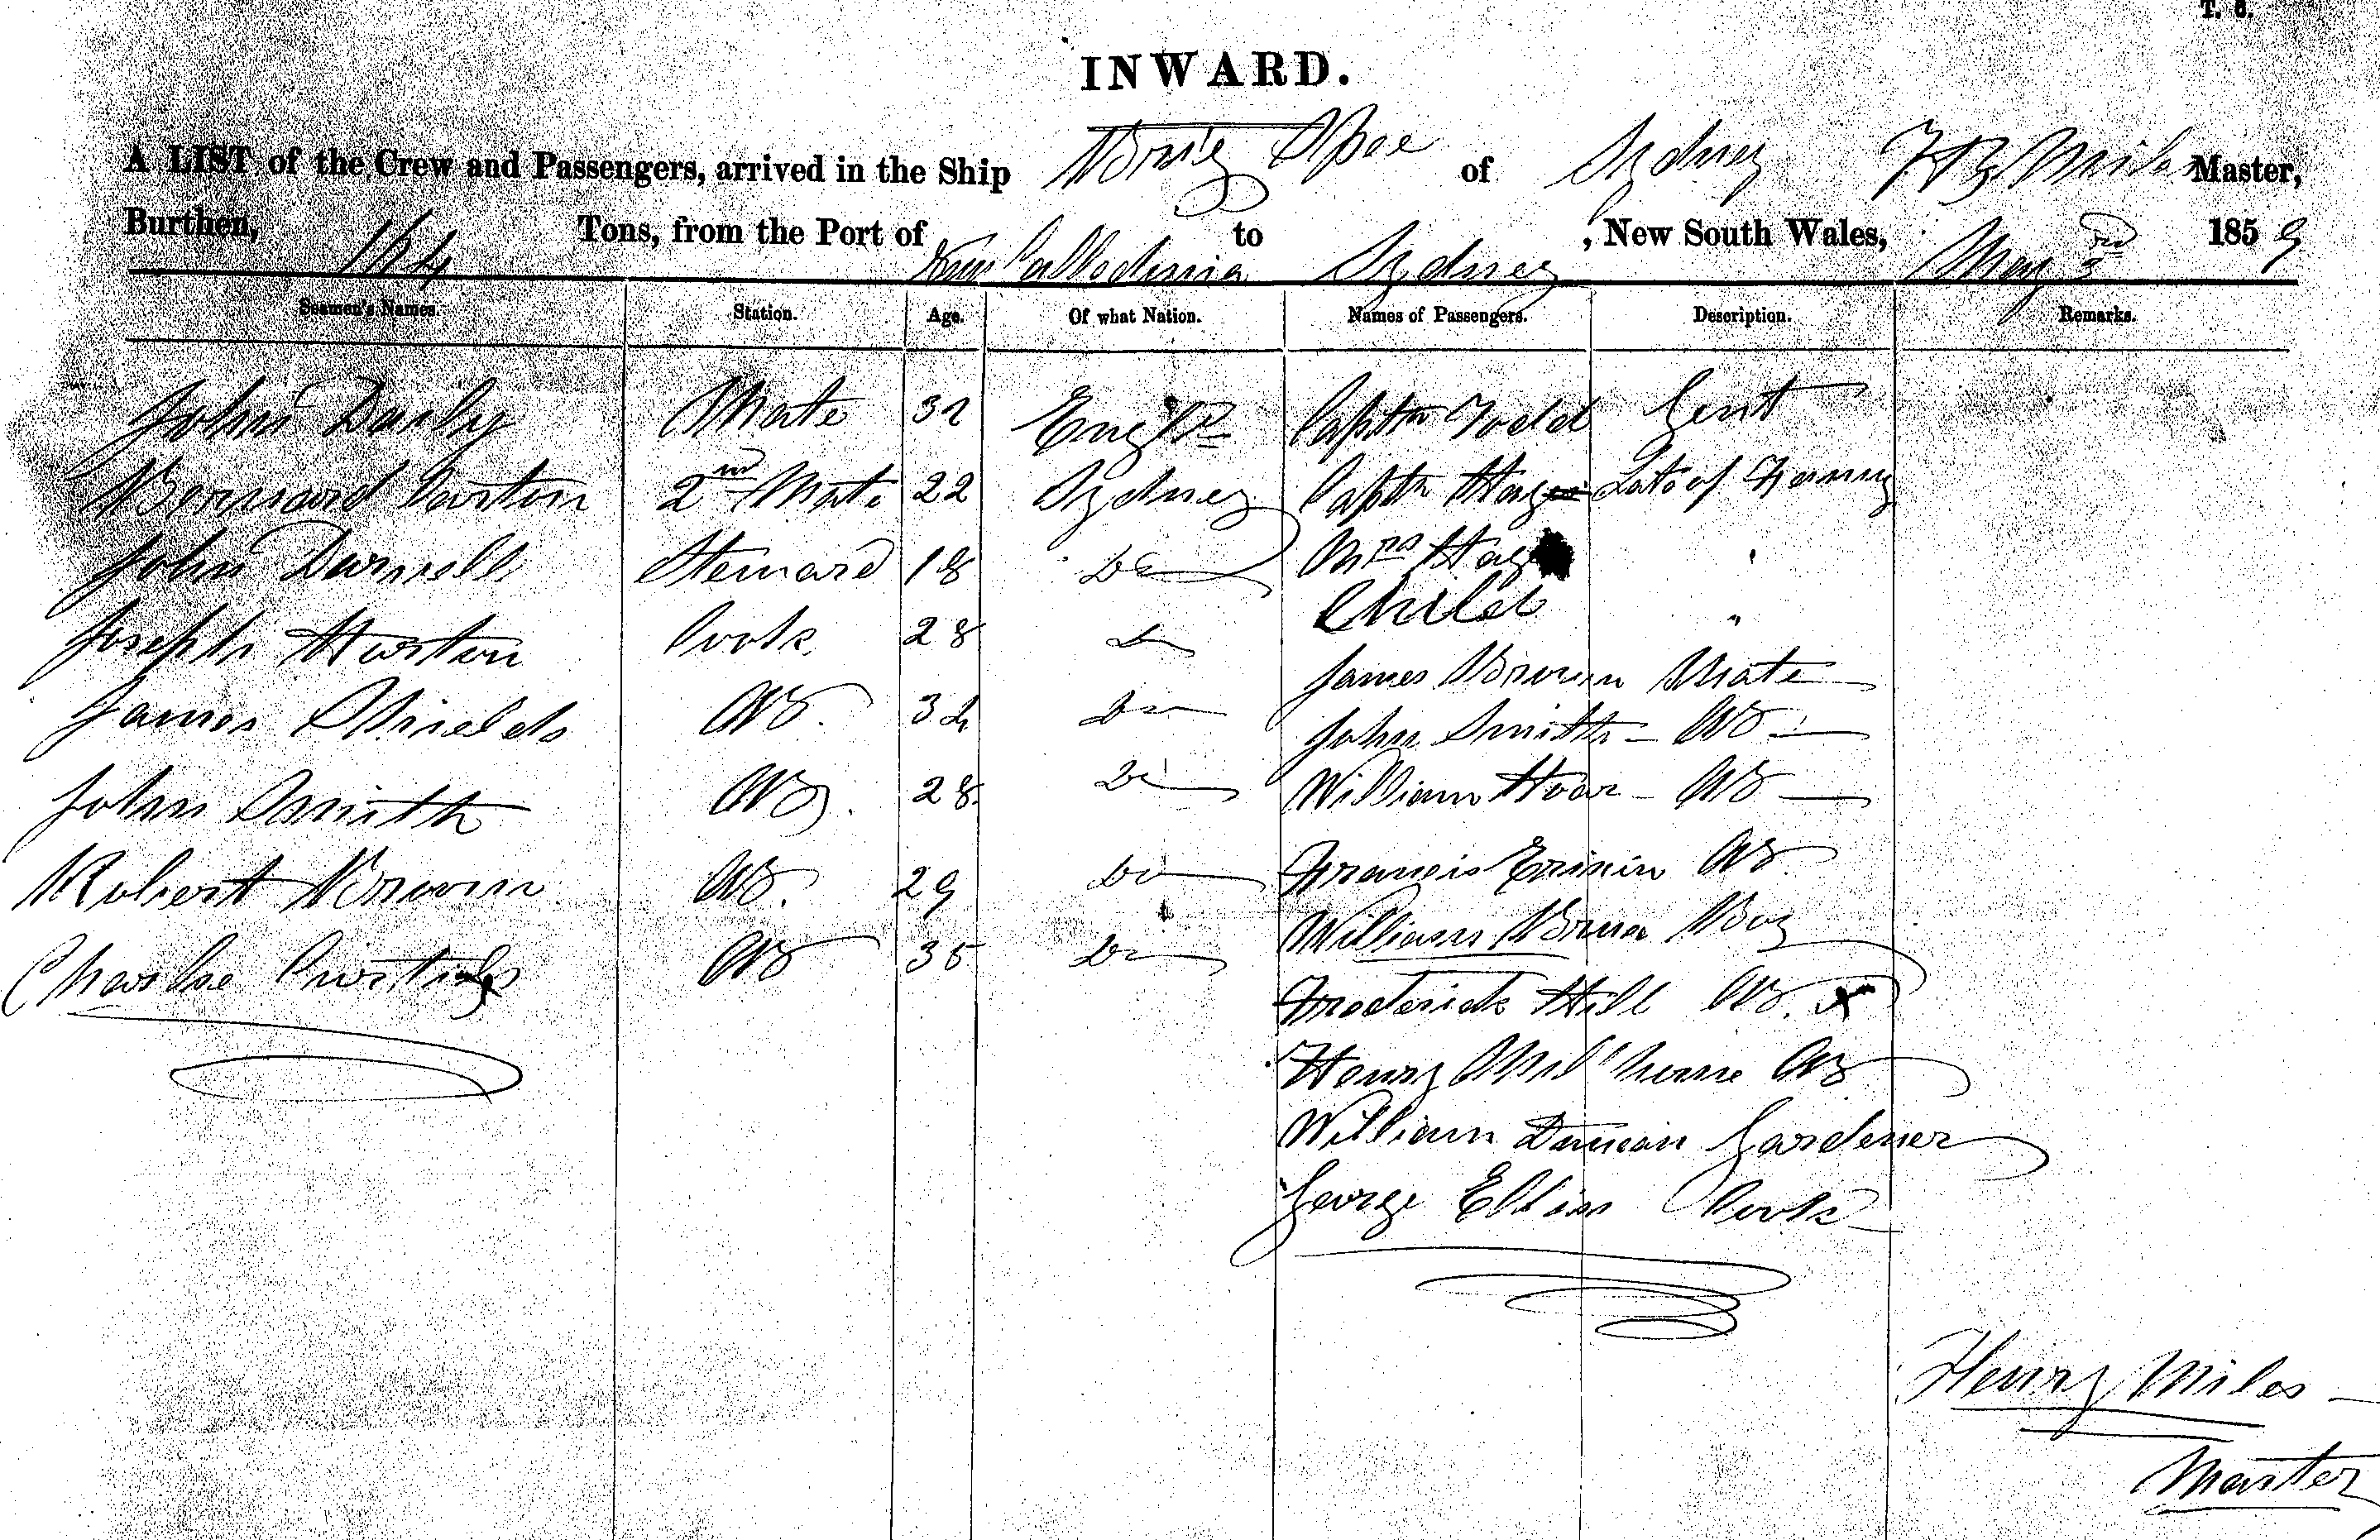 T. 6.
INWARD.
A LIST of the Crew and Passengers, arrived in the Ship Brig Spec of Sydney H B Miles Master,
Burthen, 164 Tons, from the Port of New Calledonia to Sydney, New South Wales, May 3rd 1859
Seamen's Names. Station. Age. Of what Nation. Names of Passengers. Description. Remarks.
John Mate 32 Engld Captn Todd Gent
Bernard Carton 2nd Mate 22 Sydney Captn Late of
John Darnell Steward 18 Do Mrs "
Child "
Joseph Horton Cook 28 Do
James Brown Mate
James Shields AB. 34 Do
John Smith AB
John Smith AB. 28 Do William Hoar AB
Robert Brown AB. 29 Do Francis AB
William Boy
Charles AB 35 Do
Frederick Hill AB. x
Henry AB
William Duncan Gardener
George Ellis Cook
Henry Miles
Master